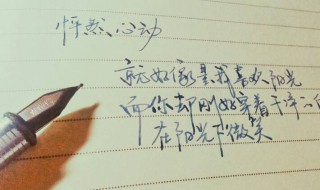 怦然心动
就好像是我喜欢阳光
而你却刚好穿着干净
在阳光下微笑